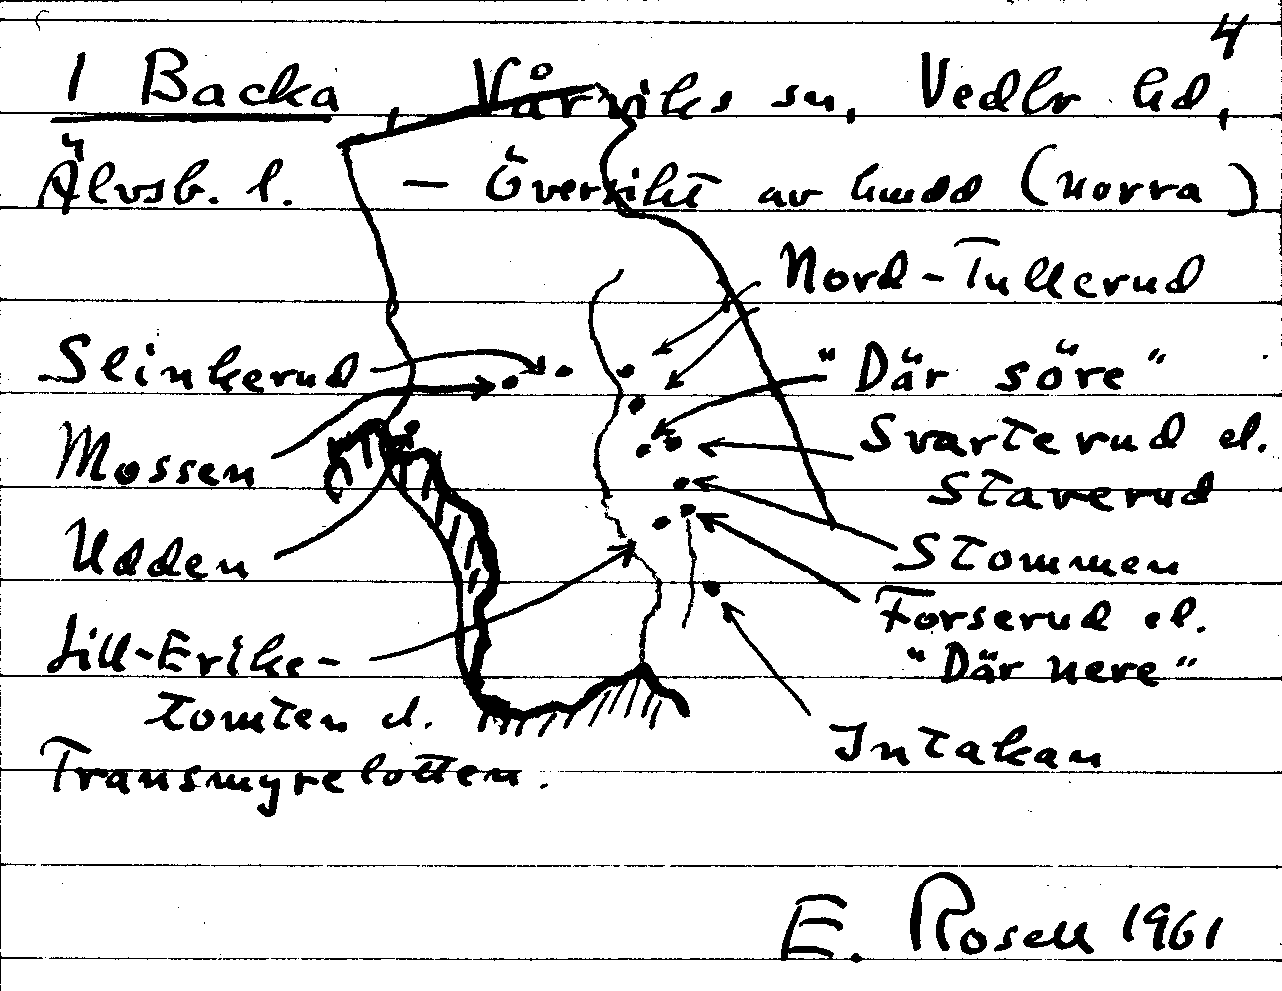 4
1 Backa, Vårviks sn, Vedbo hd,
Älvsb. l. — Översikt av hmdd (norra)
Nord-Tullerud
Slinkerud
"Där söre"
Mossen
Svarterud el.
Staverud
Udden
Stommen
Forserud el.
"Där nere"
Lill-Erike-
tomten el.
Transmyrelotten.
Intakan
E. Rosell 1961